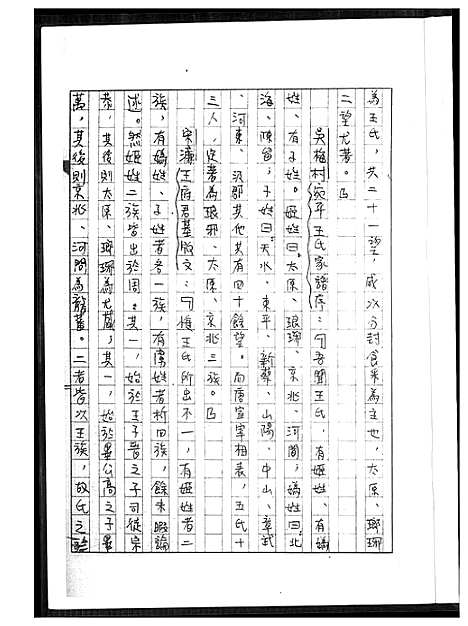 為王氏，共二十一望，咸以分封食采為主也，太原、瑯琊
二望尤著。」
吳梅村宛平王氏家譜序：「吾聞王氏，有姬姓、有媯
姓、有子姓。姬姓曰：太原、琅琊、京兆、河間，媯姓曰：北
海、陳留；子姓曰：天水、東平、新蔡、山陽、中山、章武
、河東、汲郡其他共有四十餘望。而唐宣宰相表，王氏十
三人，定著為琅邪、太原、京兆三族。」
宋濂王府君墓版文：「惟王氏所出不一，有姬姓者二
族，有媯姓、子姓者各一族，有虜姓者析四族，餘未暇論
述。然姬姓二族皆出於周。其一，始於王子晉之子司徒宗
恭，其後則太原、瑯琊為尤蕃；其一，始於畢公高之子畢
萬，其後則京兆、河間為龍蕃。二者皆以王族，故氏之